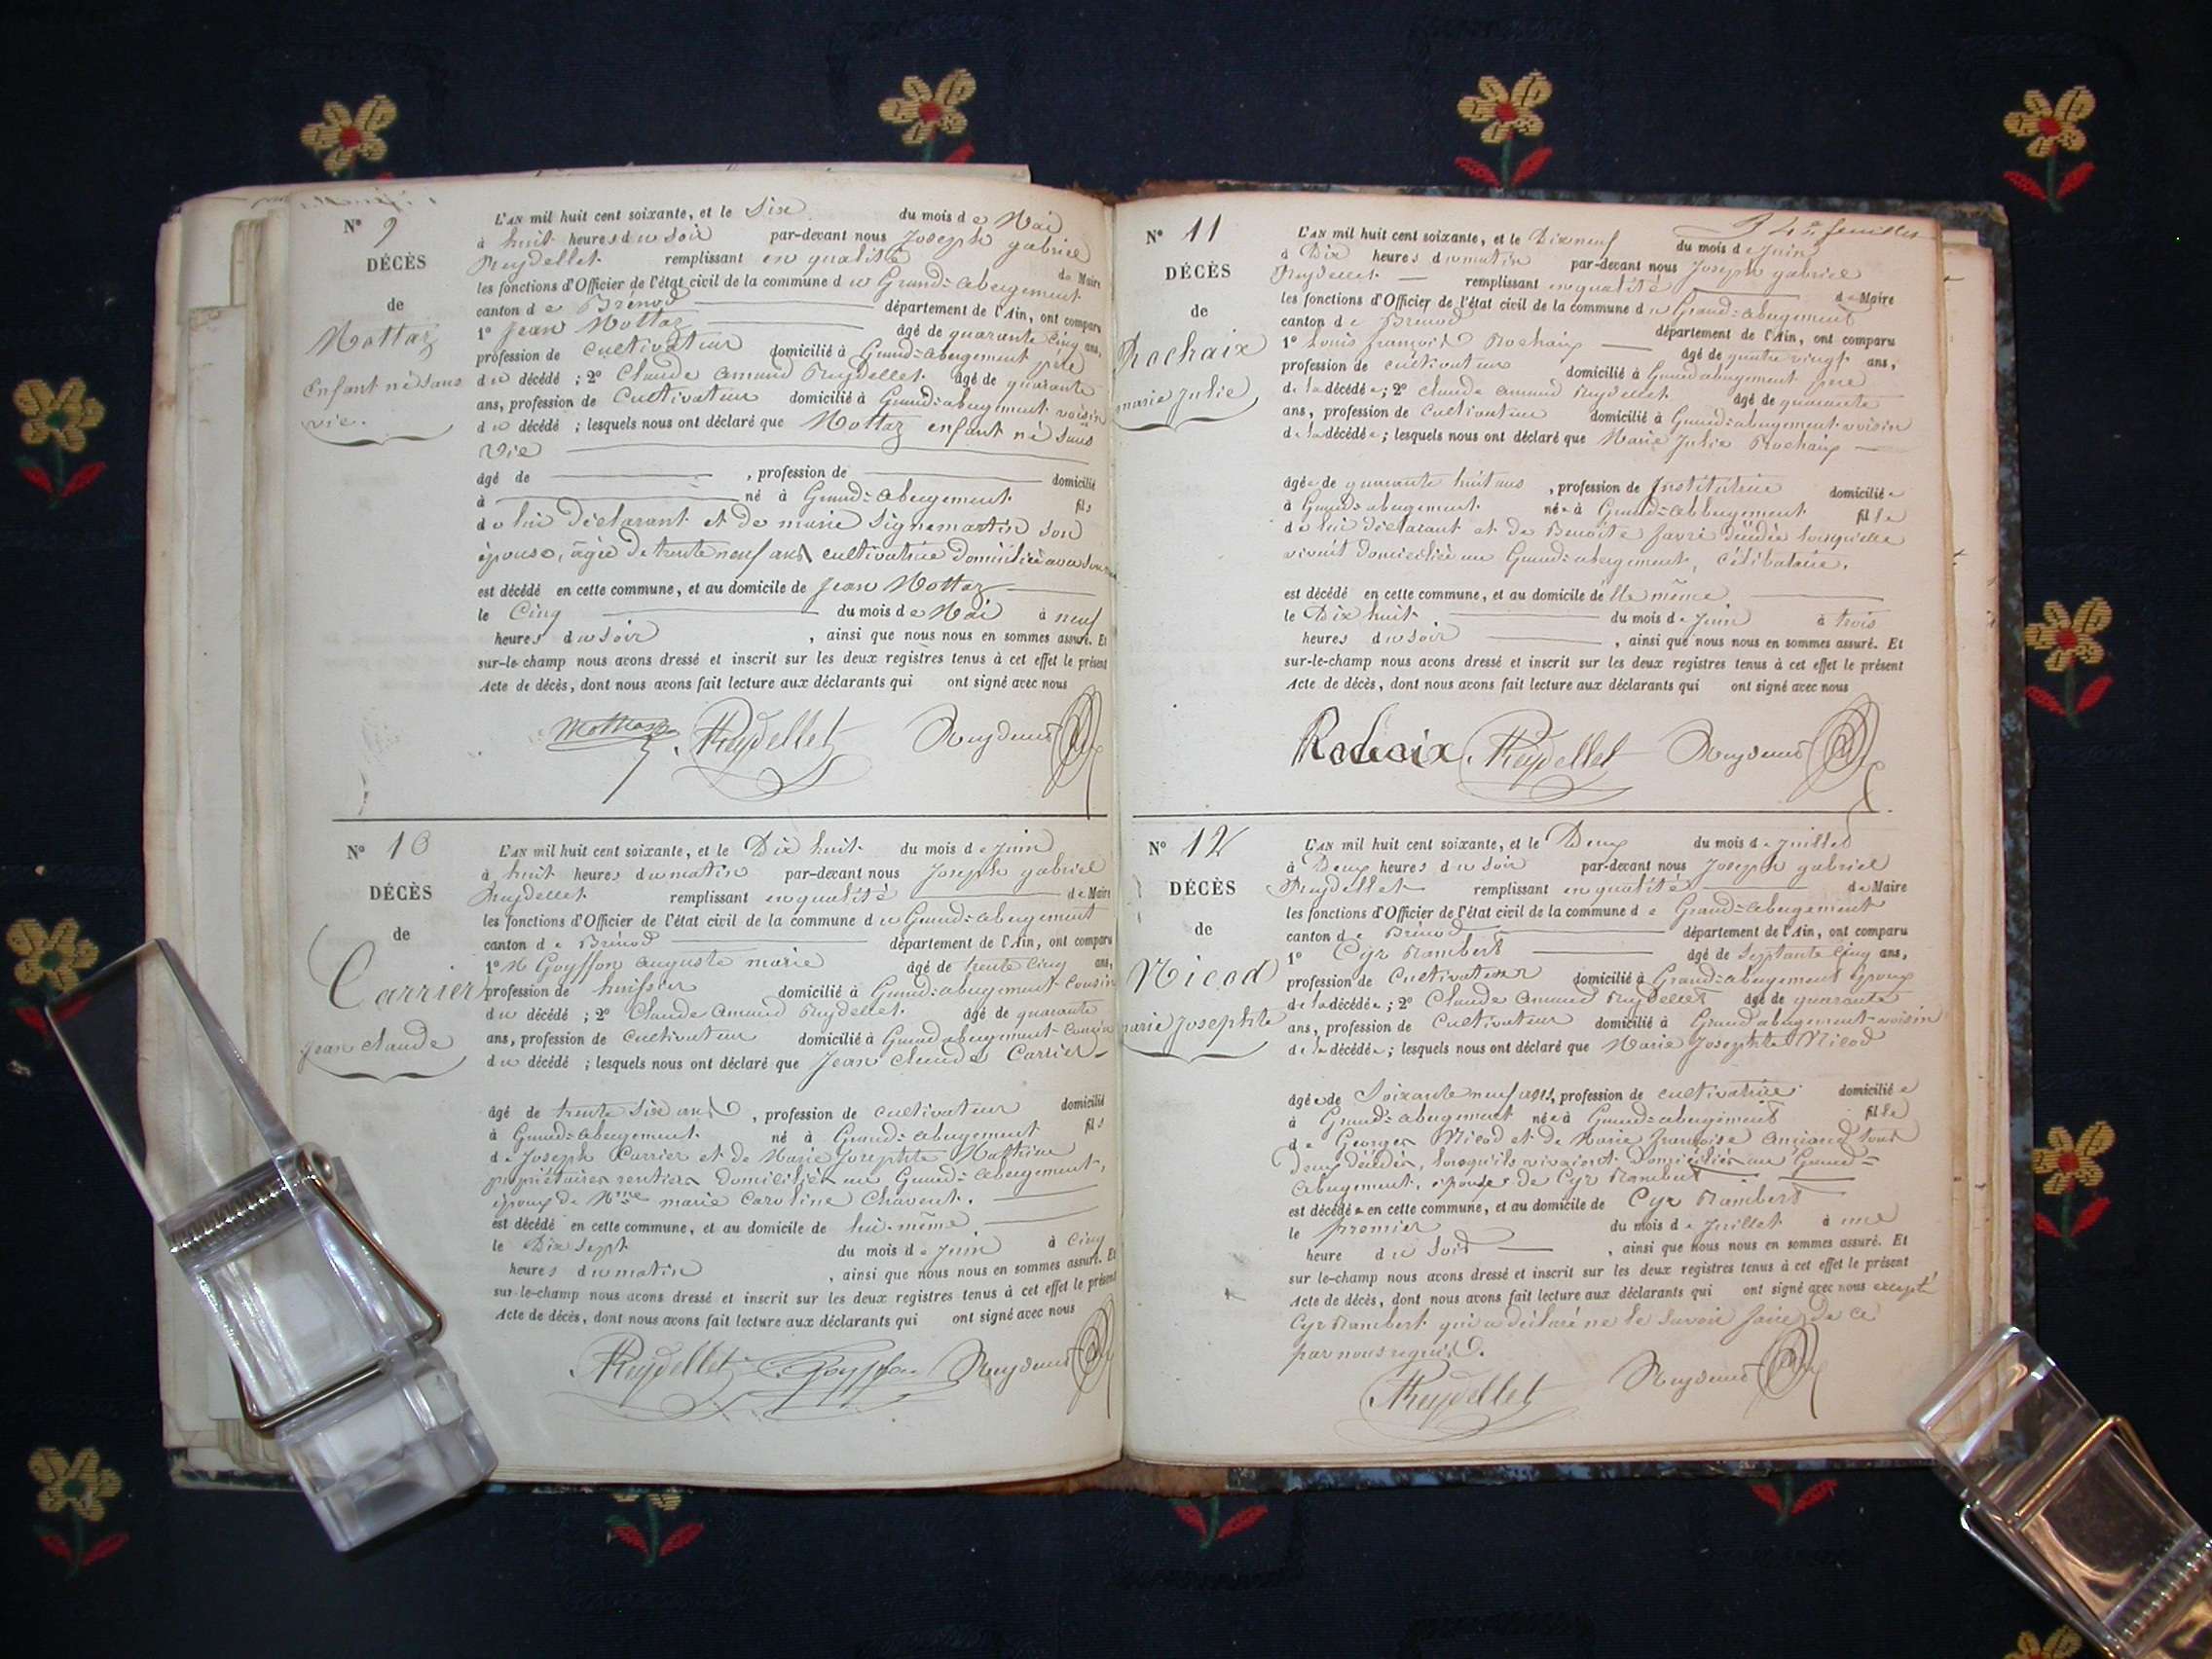 N° 9
DÉCÈS
de
Mottaz
enfant né sans
vie.
L'AN mil huit cent soixante, et le Six du mois de Mai
à huit heures du soir par-devant nous Joseph gabriel
Reydellet remplissant en qualité de Maire
les fonctions d'Officier de l'état civil de la commune du Grand=abergement
canton de Brénod département de l'Ain, ont comparu
1° Jean Mottaz âgé de quarante cinq ans,
profession de cultivateur domicilié à Grand=abergement père
du décédé ; 2° Claude amand Reydellet âgé de quarante
ans, profession de Cultivateur domicilié à Grand=abergement voisin
du décédé ; lesquels nous ont déclaré que Mottaz enfant né sans
vie
âgé de , profession de domicilié
à né à Grand=abergement fils
de lui déclarant et de marie Signemartin son
épouse, âgée de trente neuf ans cultivatrice domiciliée avec son
est décédé en cette commune, et au domicile de Jean Mottaz
le Cinq du mois de Mai à neuf
heures du soir , ainsi que nous nous en sommes assuré. Et
sur-le-champ nous avons dressé et inscrit sur les deux registres tenus à cet effet le présent
Acte de décès, dont nous avons fait lecture aux déclarants qui ont signé avec nous
Mottaz Reydellet
N° 10
DÉCÈS
de
Carrier
Jean claude
L'AN mil huit cent soixante, et le Dix huit du mois de Juin
à huit heures du matin par-devant nous Joseph gabriel
Reydellet remplissant en qualité de Maire
les fonctions d'Officier de l'état civil de la commune du Grand=abergement
canton de Brénod département de l'Ain, ont comparu
1° M Goyffon auguste marie âgé de trente cinq ans,
profession de huissier domicilié à Grand=abergement Cousin
du décédé ; 2° Claude amand Reydellet âgé de quarante
ans, profession de Cultivateur domicilié à Grand abergement Cousin
du décédé ; lesquels nous ont déclaré que Jean claude Carrier
âgé de trente six ans , profession de cultivateur domicilié
à Grand=abergement né à Grand=abergement fils
de Joseph Carrier et de Marie Josephte
propriétaires rentiers domiciliés au Grand=abergement,
époux de Mme marie Caroline Chavent.
est décédé en cette commune, et au domicile de lui-même
le Dix Sept du mois de Juin à Cinq
heures du matin , ainsi que nous nous en sommes assuré. Et
sur-le-champ nous avons dressé et inscrit sur les deux registres tenus à cet effet le présent
Acte de décès, dont nous avons fait lecture aux déclarants qui ont signé avec nous
Reydellet Goyffon
feuilles
N° 11
DÉCÈS
de
Rochaix
marie Julie
L'AN mil huit cent soixante, et le Dix neuf du mois de Juin
à Dix heures du matin par-devant nous Joseph gabriel
Reydellet remplissant en qualité de Maire
les fonctions d'Officier de l'état civil de la commune du Grand=abergement
canton de Brénod département de l'Ain, ont comparu
1° Louis françois Rochaix âgé de quatre vingt ans,
profession de cultivateur domicilié à Grand abergement père
de la décédée ; 2° Claude amand Reydellet âgé de quarante
ans, profession de Cultivateur domicilié à Grand=abergement voisin
de la décédée ; lesquels nous ont déclaré que Marie Julie Rochaix
âgée de quarante huit ans , profession de Institutrice domiciliée
à Grand=abergement née à Grand=abbergement fille
de lui déclarant et de Benoite favre décédée lorsqu'elle
vivait domiciliée au Grand=abergement, célibataire.
est décédé en cette commune, et au domicile de elle même
le Dix huit du mois de Juin à trois
heures du soir , ainsi que nous nous en sommes assuré. Et
sur-le-champ nous avons dressé et inscrit sur les deux registres tenus à cet effet le présent
Acte de décès, dont nous avons fait lecture aux déclarants qui ont signé avec nous
Rochaix Reydellet
N° 12
DÉCÈS
de
Nicod
marie Josephte
L'AN mil huit cent soixante, et le Deux du mois de Juillet
à Deux heures du soir par-devant nous Joseph gabriel
Reydellet remplissant en qualité de Maire
les fonctions d'Officier de l'état civil de la commune de Grand=abergement
canton de Brénod département de l'Ain, ont comparu
1° Cyr Rambert âgé de Septante Cinq ans,
profession de Cultivateur domicilié à Grand=abergement époux
de la décédée ; 2° Claude amand Reydellet âgé de quarante
ans, profession de Cultivateur domicilié à Grand abergement voisin
de la décédée ; lesquels nous ont déclaré que Marie Josephte Nicod
âgée de Soixante neuf ans, profession de cultivatrice domiciliée
à Grand=abergement née à Grand=abergement fille
de Georges Nicod et de Marie françoise tout
deux décédés, lorsqu'ils vivaient domiciliés au Grand=
abergement, épouse de Cyr Rambert
est décédée en cette commune, et au domicile de Cyr Rambert
le premier du mois de Juillet à une
heure du Soir , ainsi que nous nous en sommes assuré. Et
sur le-champ nous avons dressé et inscrit sur les deux registres tenus à cet effet le présent
Acte de décès, dont nous avons fait lecture aux déclarants qui ont signé avec nous excepté
Cyr Rambert qui a déclaré ne le savoir faire de ce
par nous requis.
Reydellet